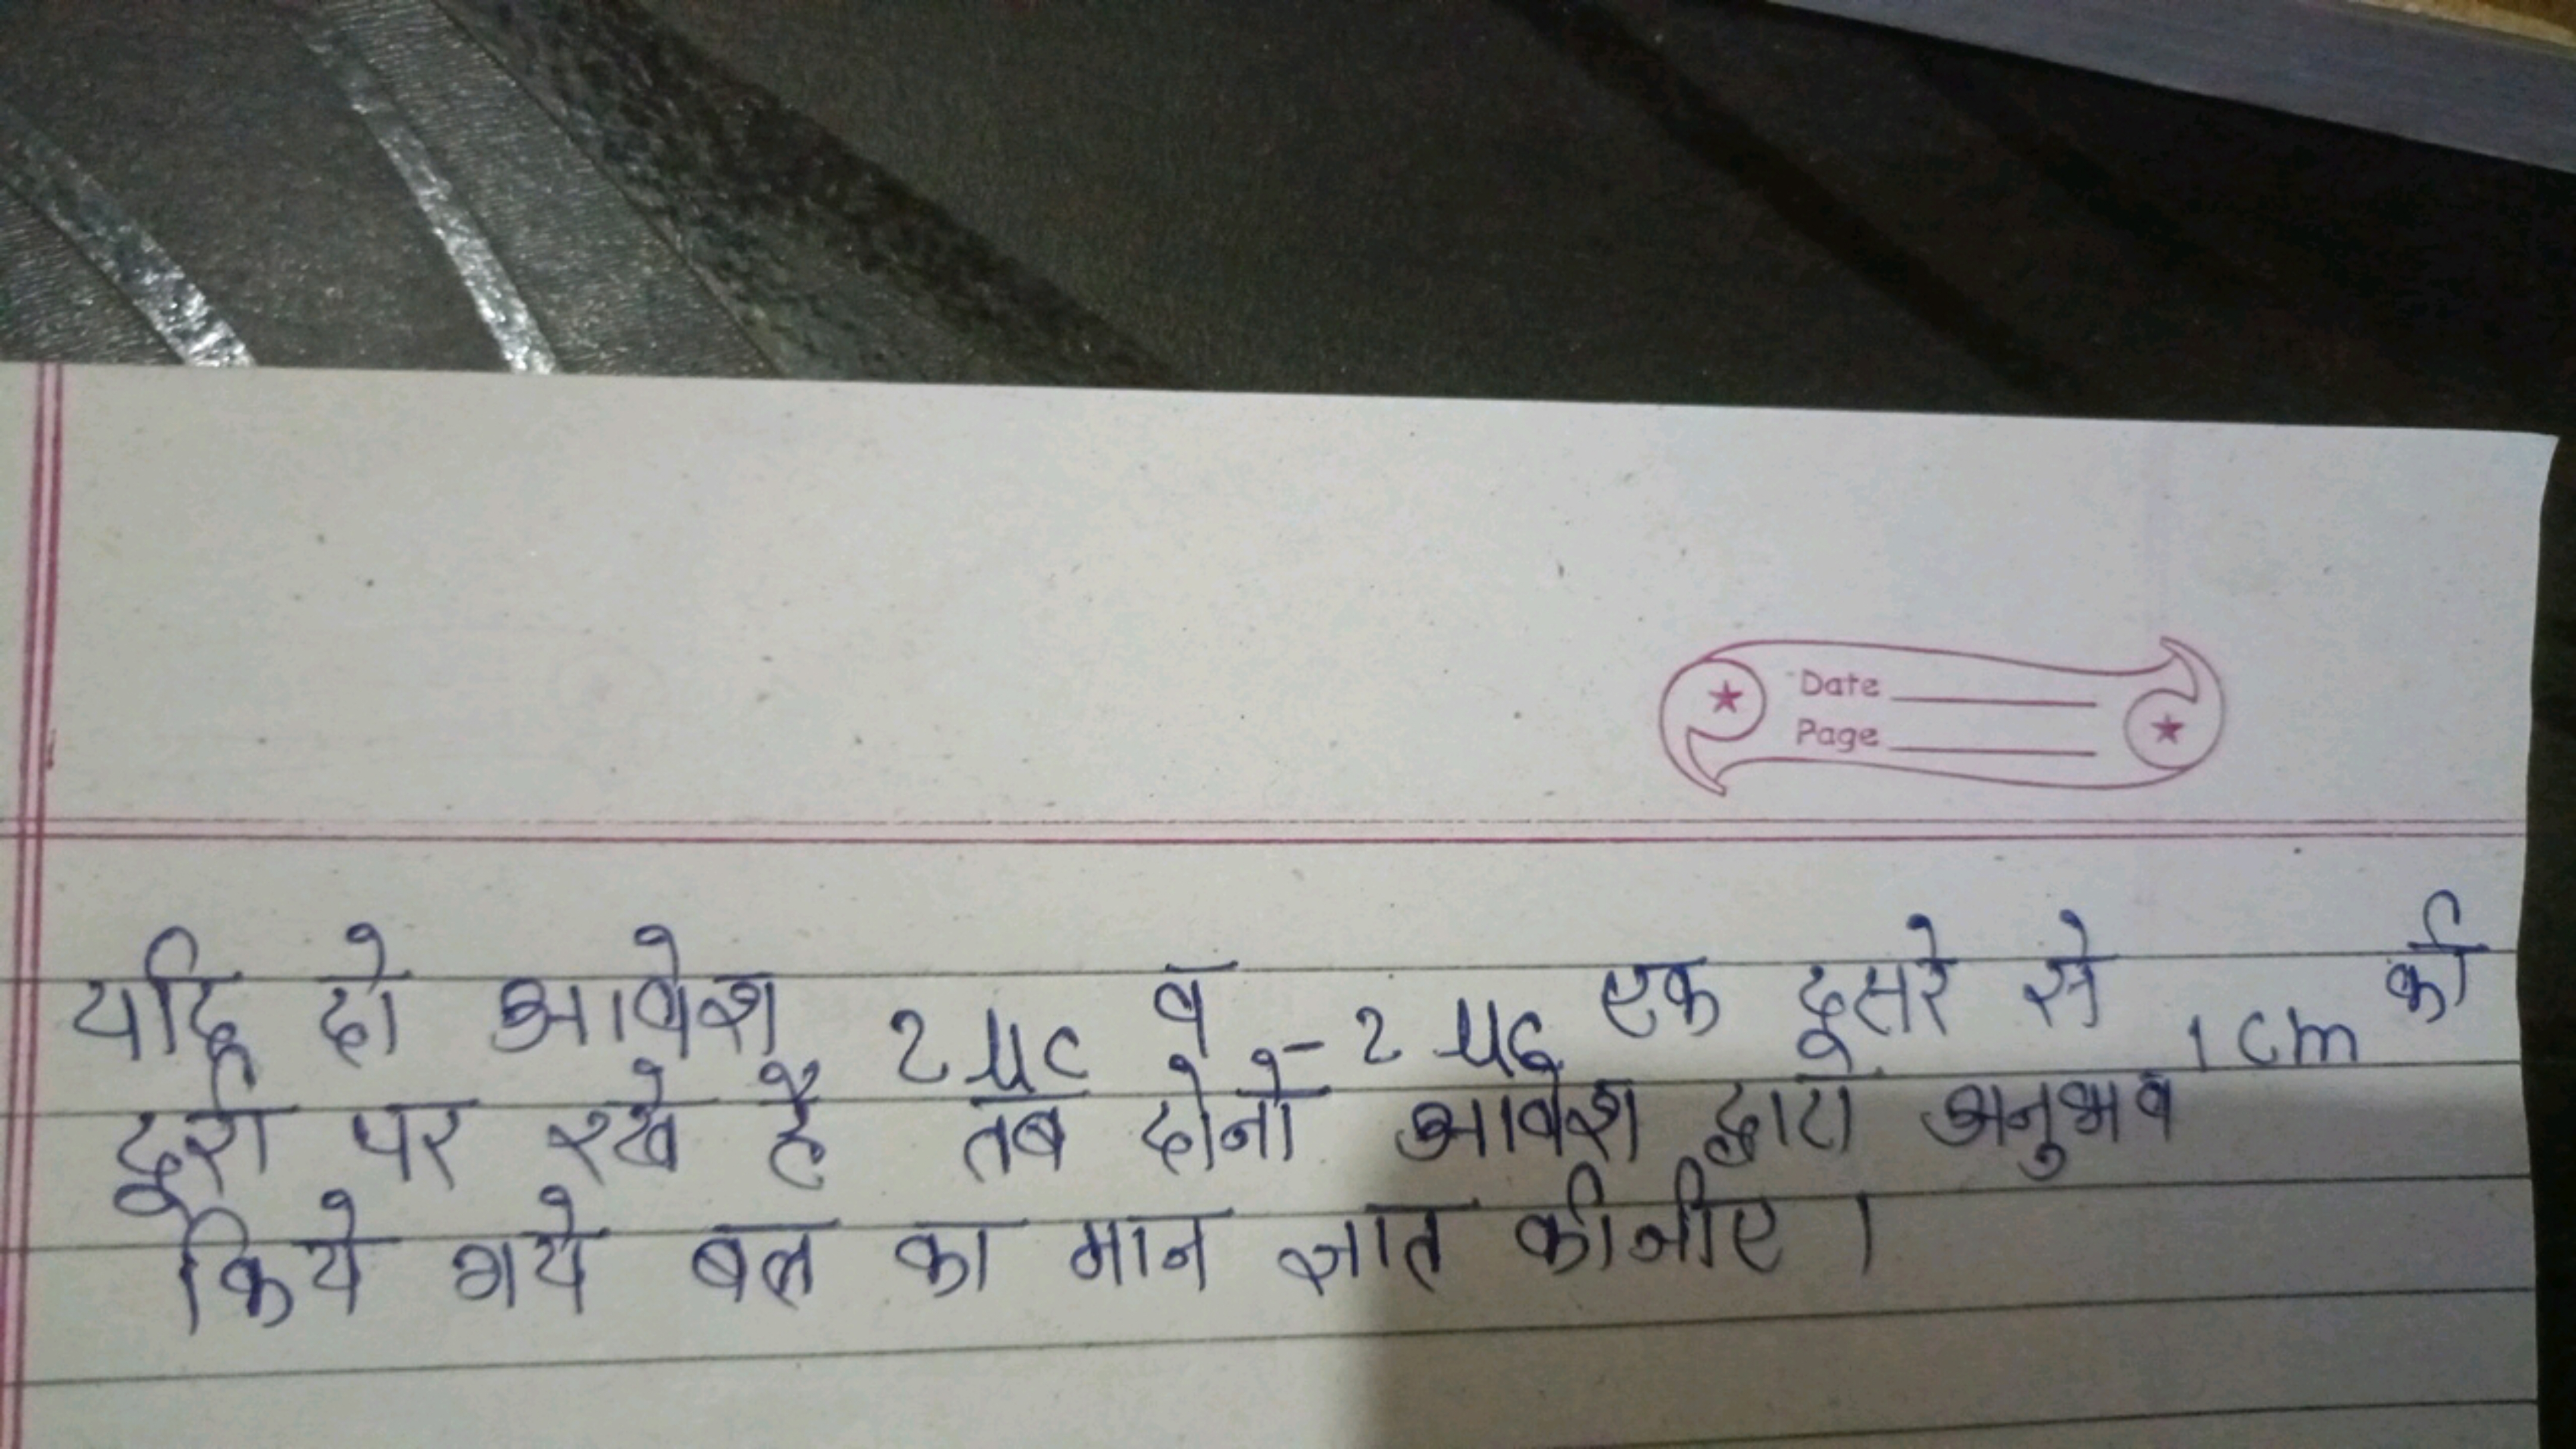 Date
Page
यदि दो आवेश 2 μc व -2 μc एक दूसरे से 1 cm की
दूरी पर रखे है तब दोनो आवेश द्वारा अनुभव
किये गये बल का मान ज्ञात कीजीए ।